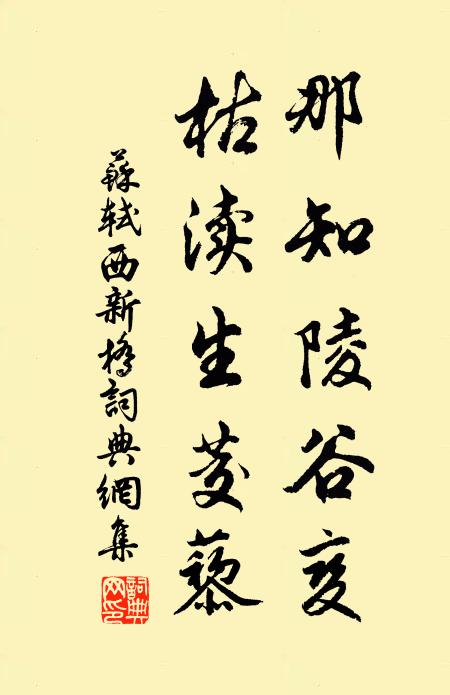 那知陵谷变
枯渎生茭藜
蘇軾西新橋詞典網集
詞典网印